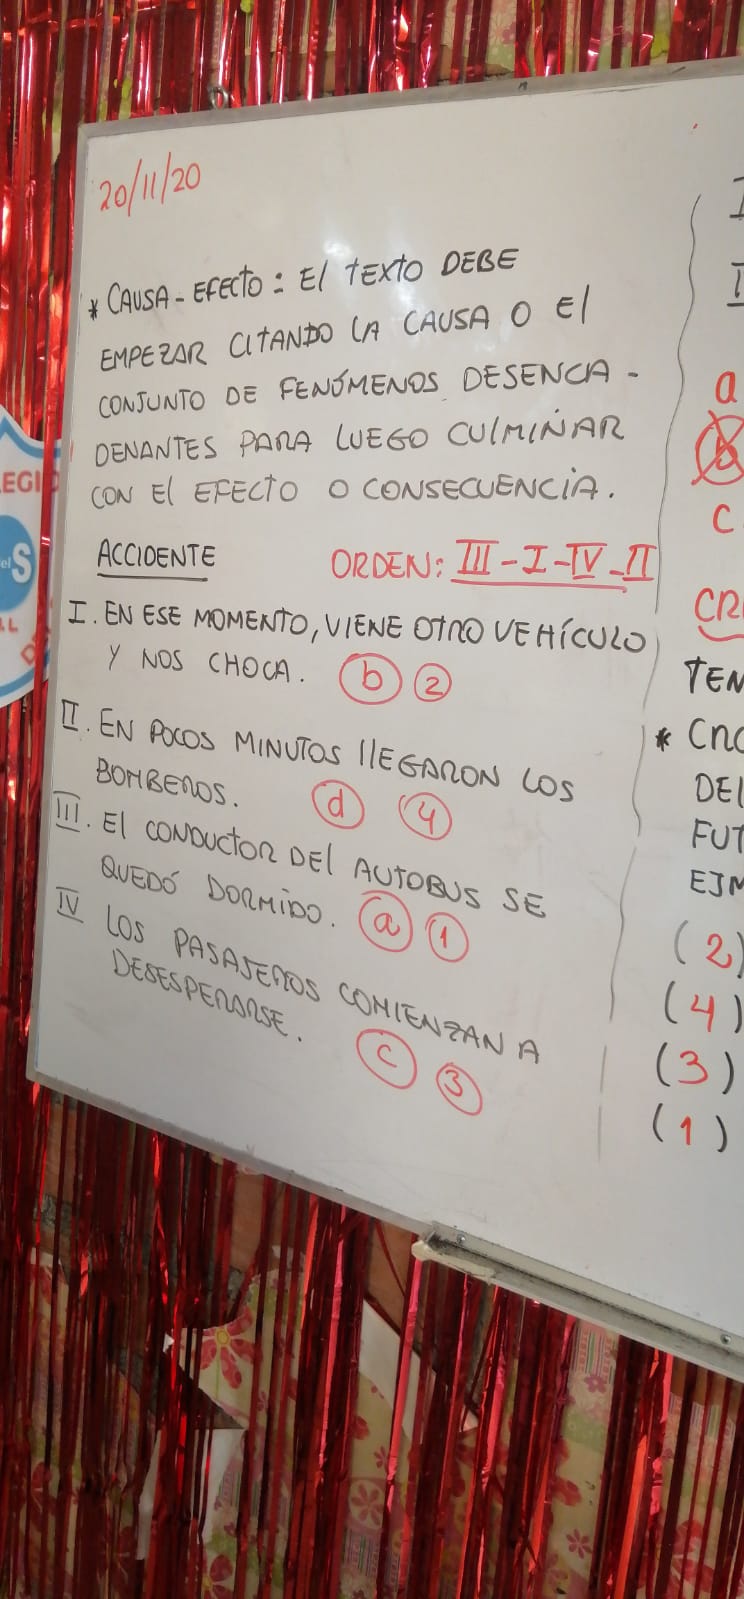 20/11/20
* CAUSA - EFECTO: El TEXTO DEBE
EMPEZAR CITANDO LA CAUSA O El
CONJUNTO DE FENÓMENOS DESENCA -
DENANTES PARA LUEGO CULMINAR
CON El EFECTO O CONSECUENCIA.
ACCIDENTE ORDEN: III - I - IV - II
I. EN ESE MOMENTO, VIENE OTRO VEHÍCULO
Y NOS CHOCA. b 2
II. EN POCOS MINUTOS llEGARON LOS
BOMBEROS. d 4
III. El CONDUCTOR DEl AUTOBUS SE
QUEDÓ DORMIDO. a 1
IV LOS PASAJEROS COMIENZAN A
DESESPERARSE. c 3
I
a
b
c
TEN
* CRO
DEl
FUT
EJM
(2)
(4)
(3)
(1)
EGI
el S